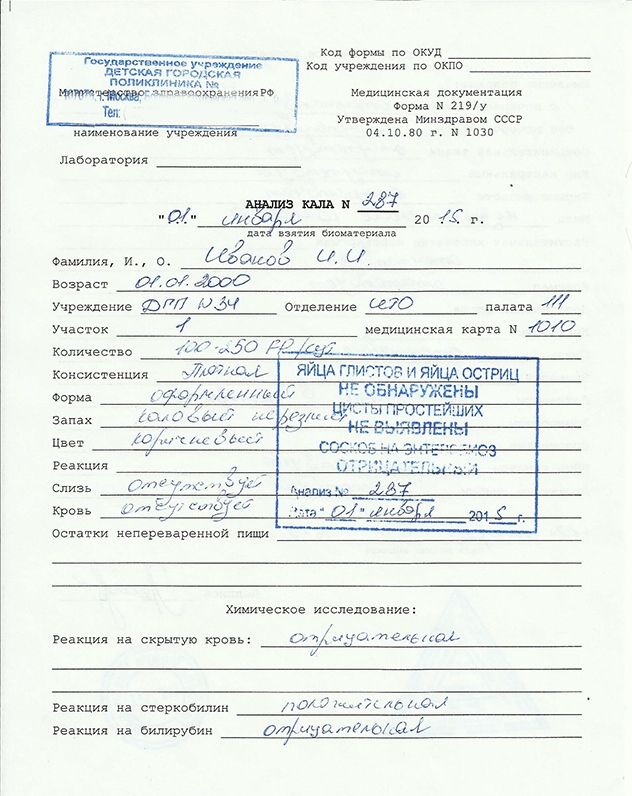 Код формы по ОКУД
Код учреждения по ОКПО
Государственное учреждение
ДЕТСКАЯ ГОРОДСКАЯ
ПОЛИКЛИНИКА №
г. Москва,
Тел:
Министерство здравоохранения РФ
наименование учреждения
Лаборатория
Медицинская документация
Форма N 219/у
Утверждена Минздравом СССР
04.10.80 г. N 1030
АНАЛИЗ КАЛА N 287
"01." января 2015. г.
дата взятия биоматериала
Фамилия, И., О. Иванов И. И.
Возраст 01.01.2000
Учреждение ДГП N34 Отделение палата 111
Участок 1 медицинская карта N 1010
Количество 100-250 гр/сут
Консистенция Плотная
Форма оформленный
Запах каловый нерезкий
Цвет коричневый
Реакция
Слизь отсутствует
Кровь отсутствует
Остатки непереваренной пищи
ЯЙЦА ГЛИСТОВ И ЯЙЦА ОСТРИЦ
НЕ ОБНАРУЖЕНЫ
ЦИСТЫ ПРОСТЕЙШИХ
НЕ ВЫЯВЛЕНЫ
СОСКОБ НА ЭНТЕРОБИОЗ
ОТРИЦАТЕЛЬНЫЙ
Анализ № 287
Дата "01" января 2015г.
Химическое исследование:
Реакция на скрытую кровь: отрицательная
Реакция на стеркобилин положительная
Реакция на билирубин отрицательная